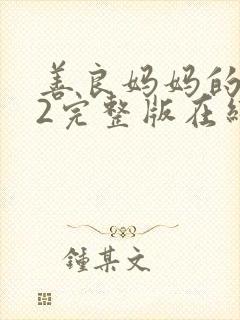 善良妈妈的
2完整版在线
鍾某文